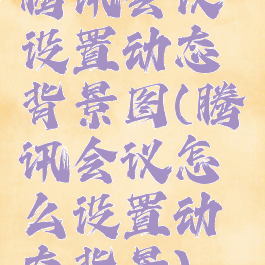 腾讯会议
设置动态
背景图(腾
讯会议怎
么设置动
态背景)